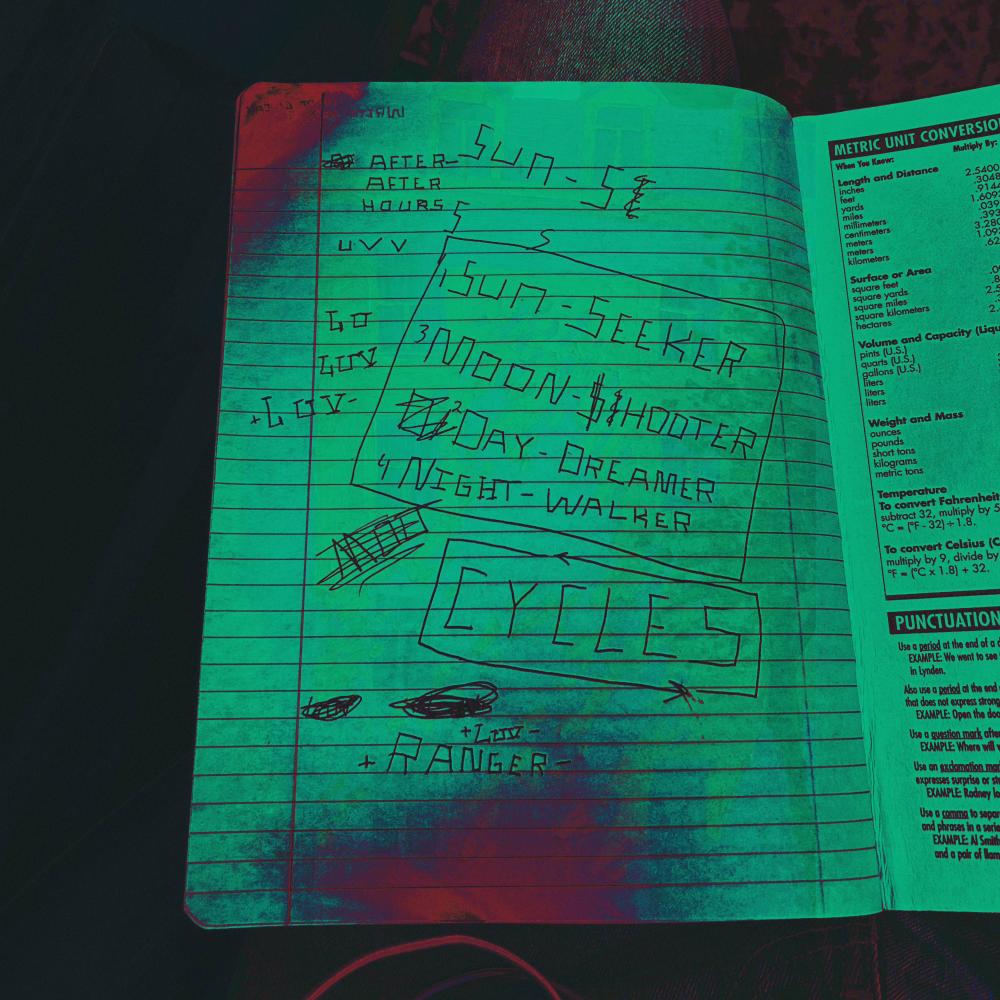 AFTER-
AFTER
HOURS
SUN-S
UVV
S
S
1SUN-SEEKER
LO
3MOON-$HOOTER
LUV
+LUV-
2DAY-DREAMER
4NIGHT-WALKER
CYCLES
+LUV-
+RANGER-
METRIC UNIT CONVERSION
When You Know: Multiply By:
Length and Distance
inches 2.5400
feet .3048
yards .9144
miles 1.609
millimeters .039
centimeters .393
meters 3.280
meters 1.09
kilometers .62
Surface or Area
square feet .0
square yards .8
square miles 2.5
square kilometers
hectares 2.
Volume and Capacity (Liqu
pints (U.S.)
quarts (U.S.)
gallons (U.S.)
liters
liters
liters
Weight and Mass
ounces
pounds
short tons
kilograms
metric tons
Temperature
To convert Fahrenheit
subtract 32, multiply by 5
°C = (°F - 32) ÷ 1.8.
To convert Celsius (C
multiply by 9, divide by
°F = (°C x 1.8) + 32.
PUNCTUATION
Use a period at the end of a d
EXAMPLE: We went to see
in Lynden.
Also use a period at the end
that does not express strong
EXAMPLE: Open the doo
Use a question mark after
EXAMPLE: Where will
Use an exclamation mar
expresses surprise or str
EXAMPLE: Rodney lo
Use a comma to separ
and phrases in a serie
EXAMPLE: Al Smith
and a pair of llam